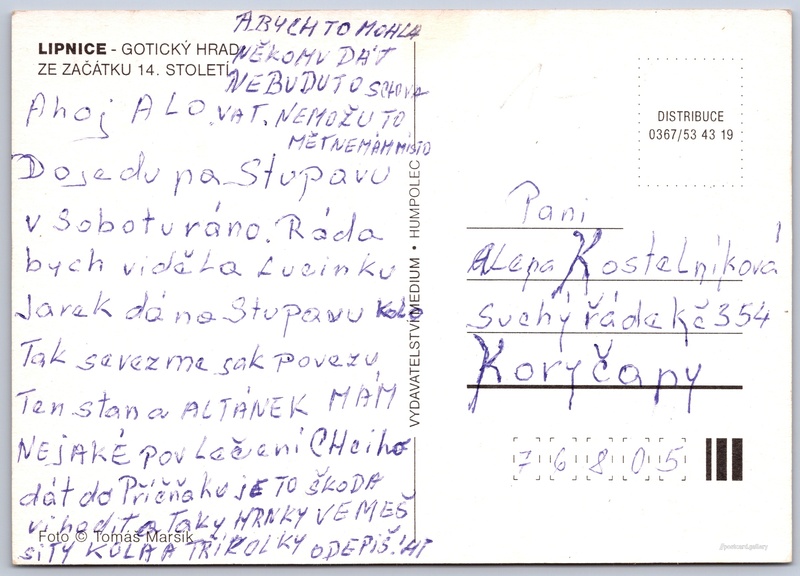 LIPNICE - GOTICKÝ HRAD
ZE ZAČÁTKU 14. STOLETÍ
ABYCH TO MOHLA
NĚKOMU DÁT
NEBUDU TO SCHOVA
VAT. NEMOŽU TO
MĚT NEMÁM MÍSTO
Ahoj ALO
Dojedu na Stupavu
v Sobotu ráno. Ráda
bych viděla Lucinku
Jarek dá na Stupavu kolo
Tak se vezme jak povezu
Ten stan a ALTÁNEK MÁM
NEJAKÉ povlečení CHci ho
dát do Príčňáku jE TO ŠKODA
vihodit a Taky HRNKY VEMEŠ
SI TY KOLA A TŘÍKOLKY ODEPIŠ!
Foto © Tomáš Maršík
VYDAVATELSTVÍ MEDIUM • HUMPOLEC
DISTRIBUCE
0367/53 43 19
Pani
Alena Kostelníková
Suchý řádek č 354
Koryčany
76805